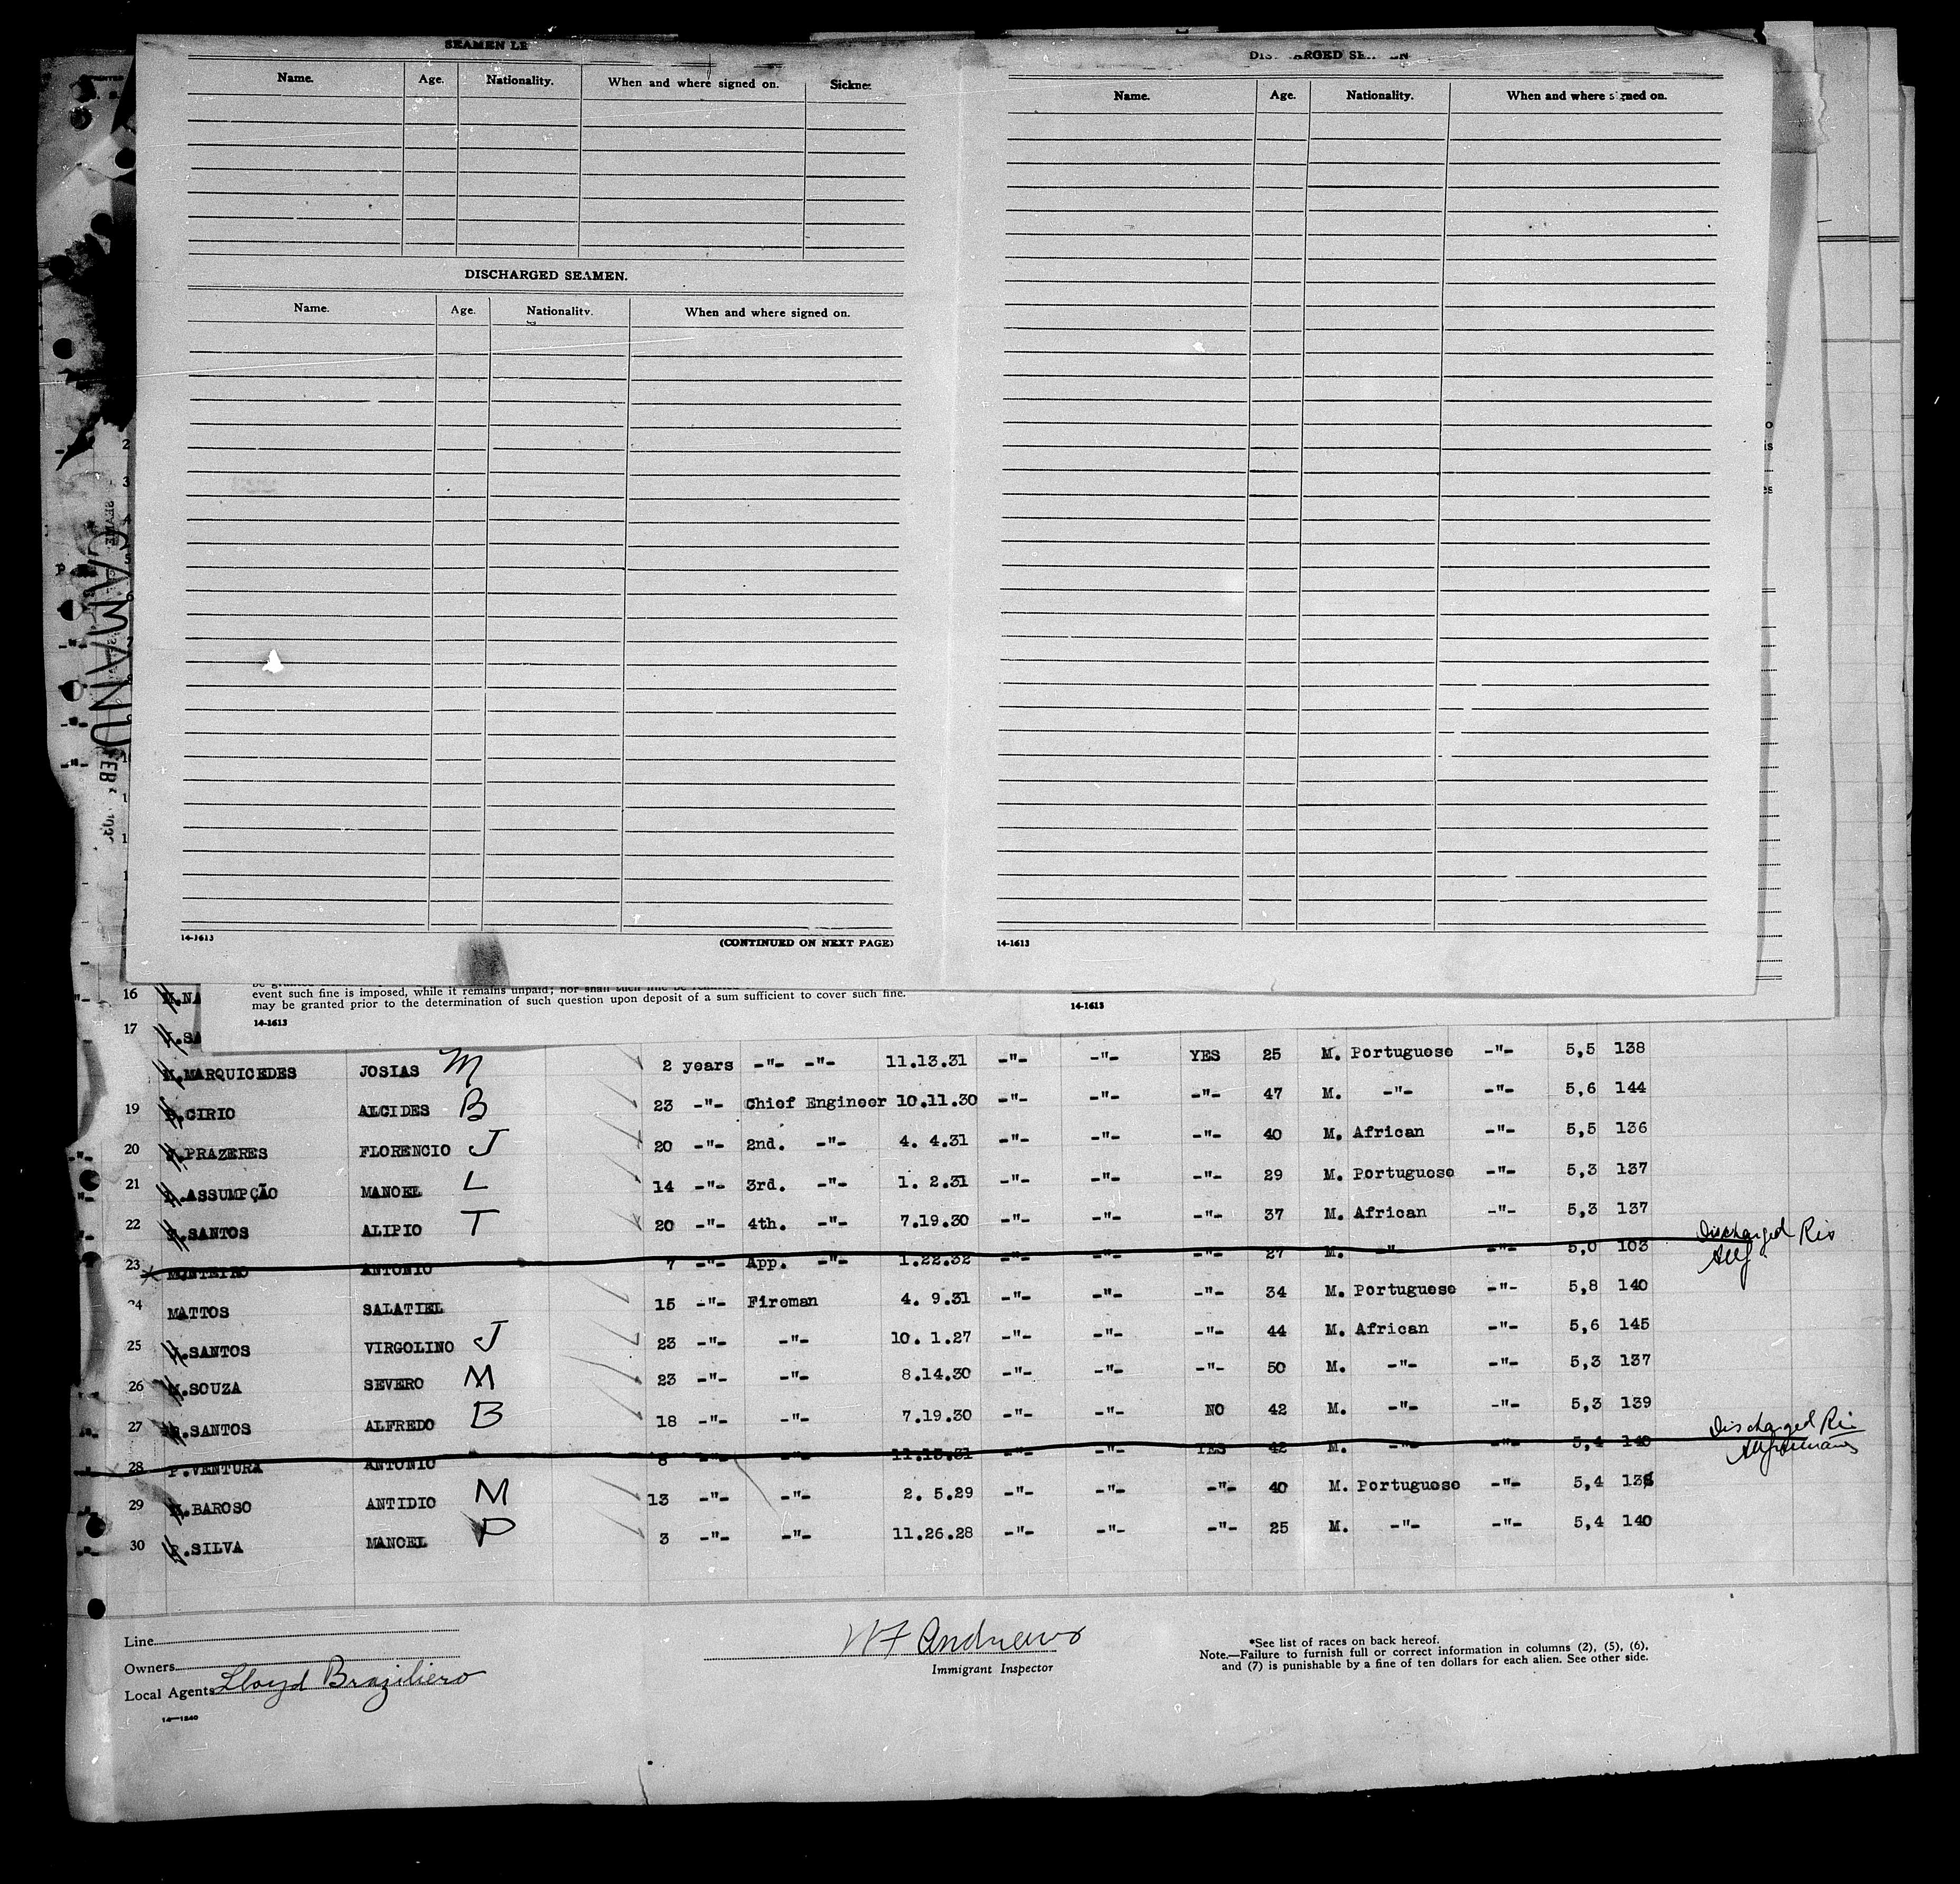 Name. Age. Nationality. When and where signed on.
DISCHARGED SEAMEN.
Name. Age. Nationality. When and where signed on.
14-1613 (CONTINUED ON NEXT PAGE)
Name. Age. Nationality. When and where signed on.
14-1613
CAMAMU
FEB
event such fine is imposed, while it remains unpaid; nor shall such fine be
may be granted prior to the determination of such question upon deposit of a sum sufficient to cover such fine.
14-1613
14-1613
16
17
M.MARQUICEDES JOSIAS M 2 years -"- -"- 11.13.31 -"- -"- YES 25 M. Portuguese -"- 5,5 138
19 B.CIRIO ALCIDES B 23 -"- Chief Engineer 10.11.30 -"- -"- -"- 47 M. -"- -"- 5,6 144
20 J.PRAZERES FLORENCIO J 20 -"- 2nd. -"- 4. 4.31 -"- -"- -"- 40 M. African -"- 5,5 136
21 L.ASSUMPÇÃO MANOEL L 14 -"- 3rd. -"- 1. 2.31 -"- -"- -"- 29 M. Portuguese -"- 5,3 137
22 T.SANTOS ALIPIO T 20 -"- 4th. -"- 7.19.30 -"- -"- -"- 37 M. African -"- 5,3 137
23 MONTEIRO ANTONIO 7 -"- App. -"- 1.22.32 -"- -"- -"- 27 M. -"- -"- 5,0 103 Discharged Rio
24 MATTOS SALATIEL 15 -"- Fireman 4. 9.31 -"- -"- -"- 34 M. Portuguese -"- 5,8 140
25 J.SANTOS VIRGOLINO J 23 -"- -"- 10. 1.27 -"- -"- -"- 44 M. African -"- 5,6 145
26 M.SOUZA SEVERO M 23 -"- -"- 8.14.30 -"- -"- -"- 50 M. -"- -"- 5,3 137
27 B.SANTOS ALFREDO B 18 -"- -"- 7.19.30 -"- -"- NO 42 M. -"- -"- 5,3 139
28 P.VENTURA ANTONIO 8 -"- -"- 11.13.31 -"- -"- YES 42 M. -"- -"- 5,4 140 Discharged Rio
29 M.BAROSO ANTIDIO M 13 -"- -"- 2. 5.29 -"- -"- -"- 40 M. Portuguese -"- 5,4
30 P.SILVA MANOEL P 3 -"- -"- 11.26.28 -"- -"- -"- 25 M. -"- -"- 5,4 140
Line
Owners
Local Agents Lloyd Braziliero
14-1240
WF Andrews
Immigrant Inspector
*See list of races on back hereof.
Note.—Failure to furnish full or correct information in columns (2), (5), (6),
and (7) is punishable by a fine of ten dollars for each alien. See other side.